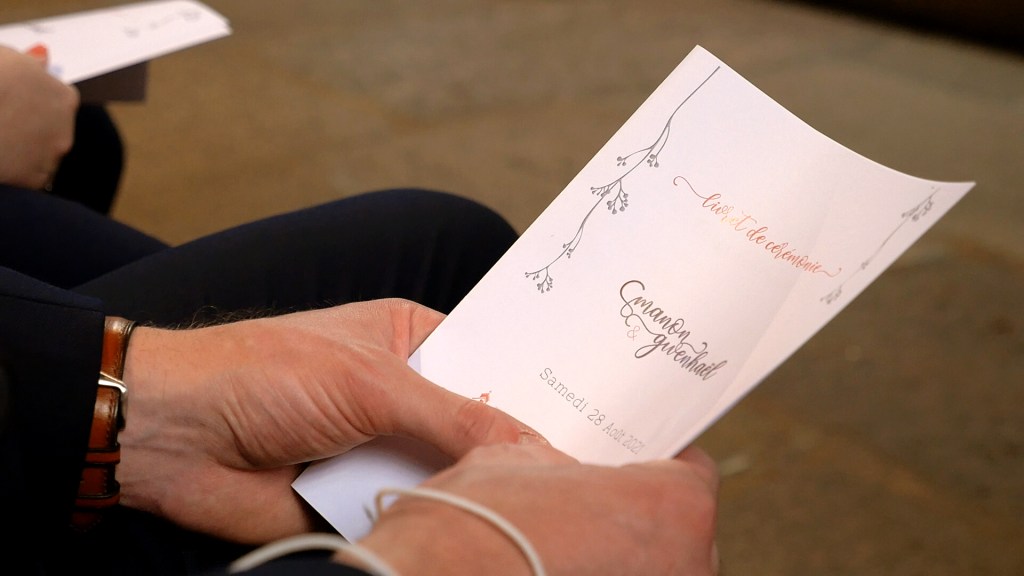 livret de cérémonie
manon
&
gwenhaël
Samedi 28 Août 2021